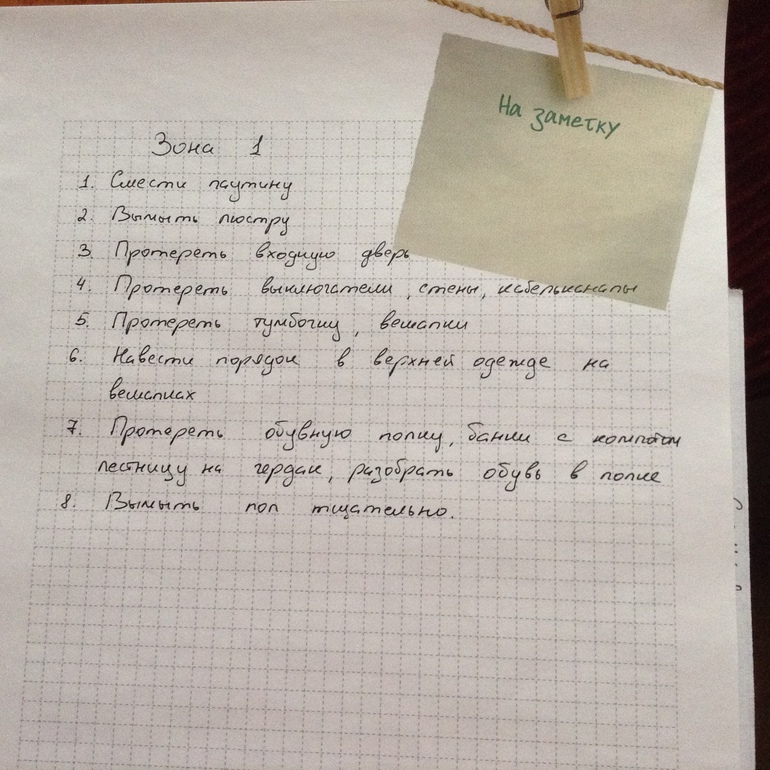 На заметку
Зона 1
1. Смести паутину
2. Вымыть люстру
3. Протереть входную дверь
4. Протереть выключатели, стены, кабельканалы
5. Протереть тумбочку, вешалки
6. Навести порядок в верхней одежде на
вешалках
7. Протереть обувную полку, банки с компотом
лестницу на чердак, разобрать обувь в полке
8. Вымыть пол тщательно.